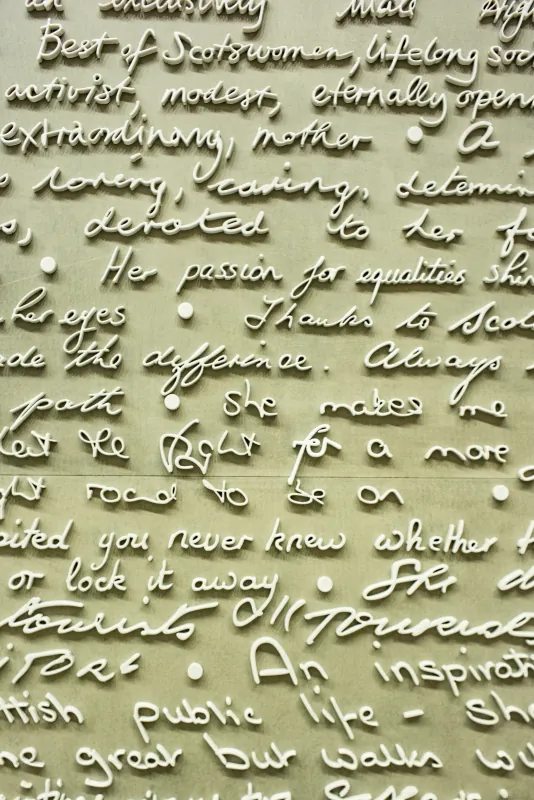 an exclusively male High
Best of Scotswomen, lifelong soc
activist, modest, eternally open
extraordinary, mother • A
s loving, caring, determin
s, devoted to her fa
• Her passion for equalities shin
her eyes • Thanks to Scot
ade the difference. Always
path • She makes me
the fight for a more
ght road to be on •
sited you never knew whether t
or lock it away • She d
tourists all
• An inspirati
ttish public life - she
ne great but walks wi